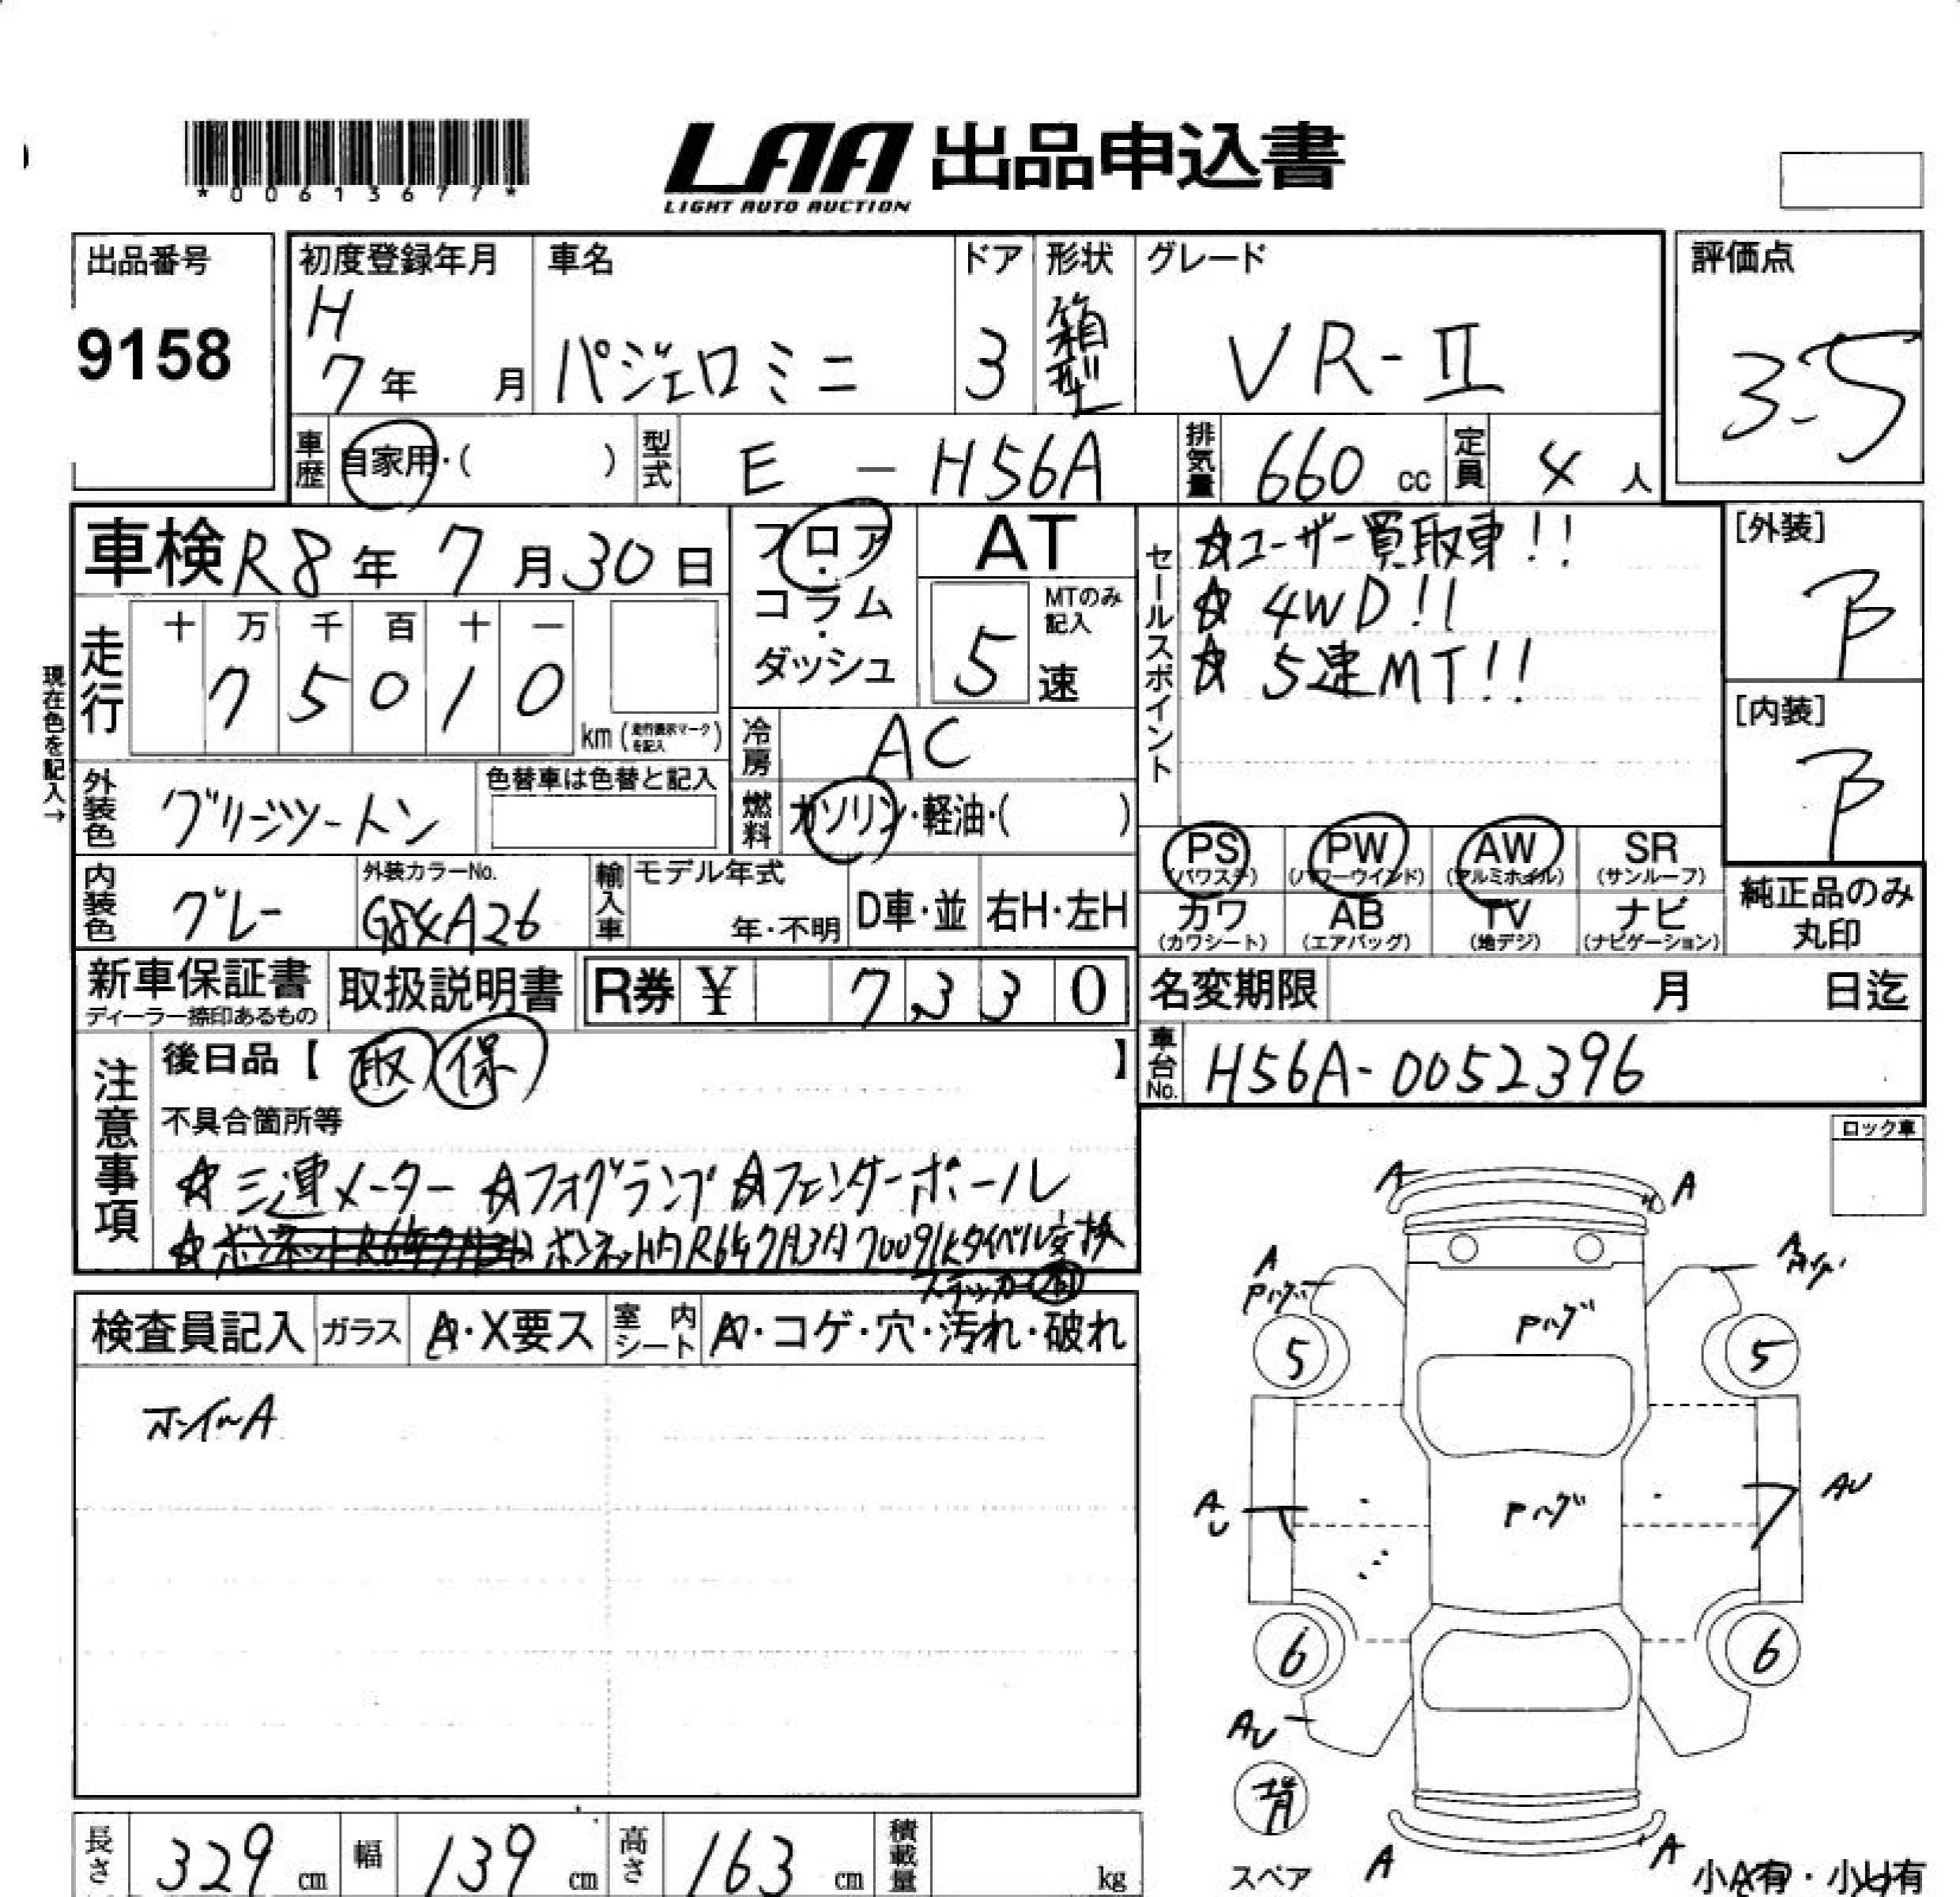 *00613677*
LAA 出品申込書
LIGHT AUTO AUCTION
出品番号
9158
初度登録年月
H
7年 月
車名
パジェロミニ
ドア
3
形状
箱型
グレード
VR-II
評価点
3.5
車歴 自家用・( )
型式 E - H56A
排気量 660 cc
定員 4 人
車検 R8年 7月30日
フロア・コラム・ダッシュ
AT
MTのみ記入
5速
走行
十 万 千 百 十 一
7 5 0 1 0
km (走行表示マークを記入)
現在色を記入→
冷房 AC
外装色 グリーンツートン
色替車は色替と記入
燃料 ガソリン・軽油・( )
内装色 グレー
外装カラーNo.
G84A26
輸入車
モデル年式
年・不明
D車・並
右H・左H
セールスポイント
☆ユーザー買取車!!
☆ 4WD!!
☆ 5速MT!!
[外装]
B
[内装]
B
PS (パワステ) PW (パワーウインド) AW (アルミホイル) SR (サンルーフ)
カワ (カワシート) AB (エアバッグ) TV (地デジ) ナビ (ナビゲーション)
純正品のみ丸印
新車保証書
ディーラー捺印あるもの
取扱説明書
R券 ¥ 7,330
名変期限 月 日迄
車台No. H56A-0052396
注意事項
後日品【 取 保 】
不具合箇所等
☆三連メーター ☆フォグランプ ☆フェンダーポール
ボンネット内R6年7月3日 70091kタイベル交換
ステッカー有
ロック車
検査員記入
ガラス A・X要ス
室内シート A・コゲ・穴・汚れ・破れ
ホイールA
A A
A
Pハゲ
Pハゲ
5 5
AU
AU
Pハゲ
6 6
AU
背
スペア
A A
小A有・小U有
長さ 329 cm
幅 139 cm
高さ 163 cm
積載量 kg